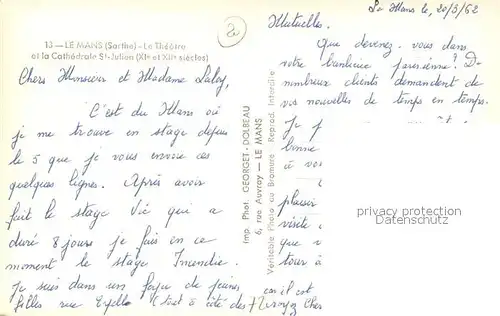 13 - LE MANS (Sarthe) - Le Théâtre
et la Cathédrale St-Julien (XIe et XIIe siècles)
Chers Monsieur et Madame
C'est du Mans où
je me trouve en stage depuis
le 5 que je vous envoie ces
quelques lignes. Après avoir
fait le stage Vie qui a
duré 8 jours je fais en ce
moment le stage Incendie.
Je suis dans un foyer de jeunes
filles rue (tout à côté des
Imp. Phot. GEORGET-DOLBEAU
6, rue Auvray - LE MANS
Véritable Photo au Bromure - Reprod. Interdite
Le Mans le, 20/3/62
Mutuelles.
Que devenez-vous dans
votre banlieue parisienne? De
nombreux clients demandent de
vos nouvelles de temps en temps.
Je
bonne
à vo
plaisir
visite
que
tour
car il est
Cher
privacy protection
Datenschutz